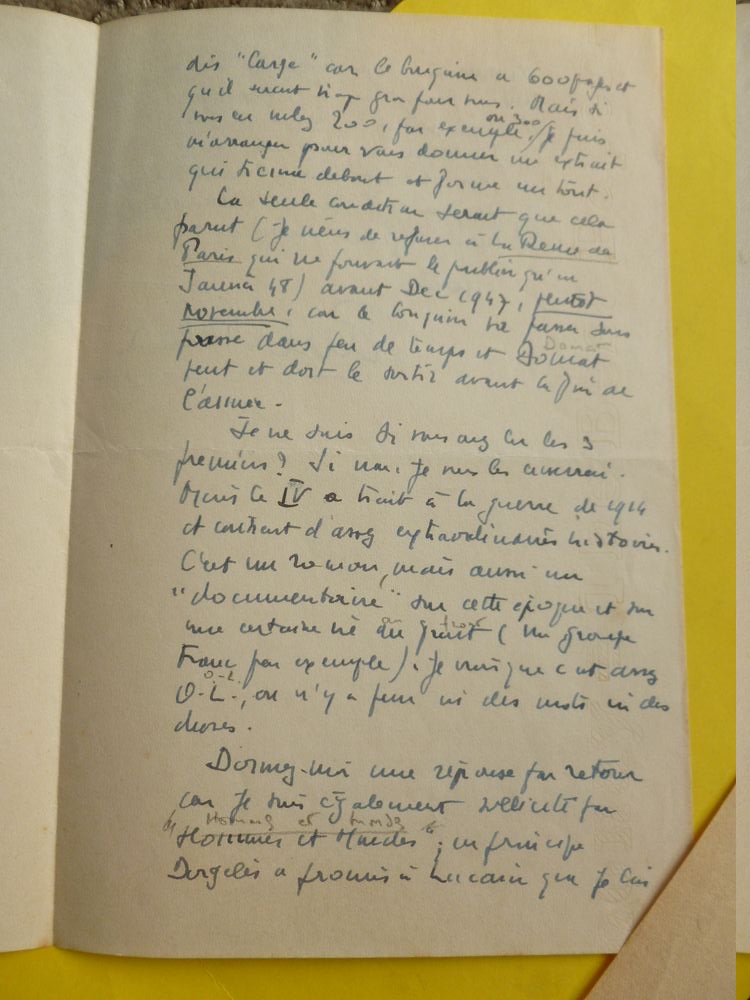 dis "large" car le bouquin a 600 pages et
qu'il serait trop gros pour vous. Mais si
vous en voulez 200, ou 300 par exemple, je puis
m'arranger pour vous donner un extrait
qui tienne debout et forme un tout.
La seule condition serait que cela
parut (je viens de refuser à La Revue de
Paris qui ne pouvait le publier qu'en
Janvier 48) avant Dec 1947, plutôt
novembre, car le bouquin va passer sous
presse dans peu de temps et Domat Domat
peut et doit le sortir avant la fin de
l'année.
Je ne sais si vous avez lu les 3
premiers? Si non, je vous les enverrai.
Mais le IV a trait à la guerre de 1914
et contient d'assez extraordinaires histoires.
C'est un roman, mais aussi un
"documentaire" sur cette époque et sur
une certaine vie au front au front (un groupe
Franc par exemple). Je crois que c'est assez
O.-L. O.-L., on n'y a peur ni des mots ni des
choses.
Donnez-moi une réponse par retour
car je suis également sollicité par
"Hommes et Mondes" Hommes et Mondes; en principe
Dorgelès a promis à que je lui